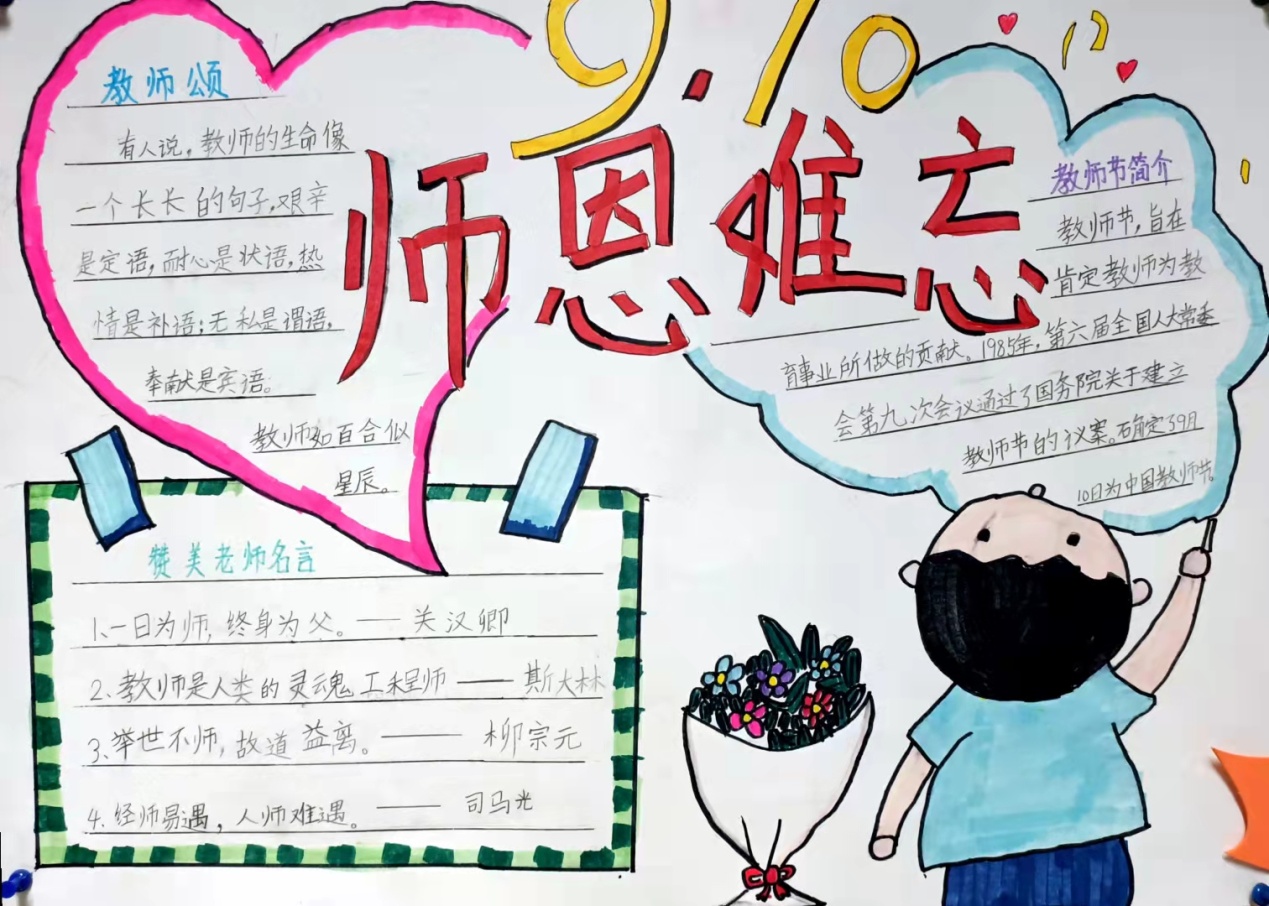 9.10
师恩难忘
教师颂
有人说，教师的生命像
一个长长的句子，艰辛
是定语，耐心是状语，热
情是补语；无私是谓语，
奉献是宾语。
教师如百合似
星辰。
教师节简介
教师节，旨在
肯定教师为教
育事业所做的贡献。1985年，第六届全国人大常委
会第九次会议通过了国务院关于建立
教师节的议案。确定了9月
10日为中国教师节。
赞美老师名言
1.一日为师，终身为父。——关汉卿
2.教师是人类的灵魂工程师——斯大林
3.举世不师，故道益离。——柳宗元
4.经师易遇，人师难遇。——司马光